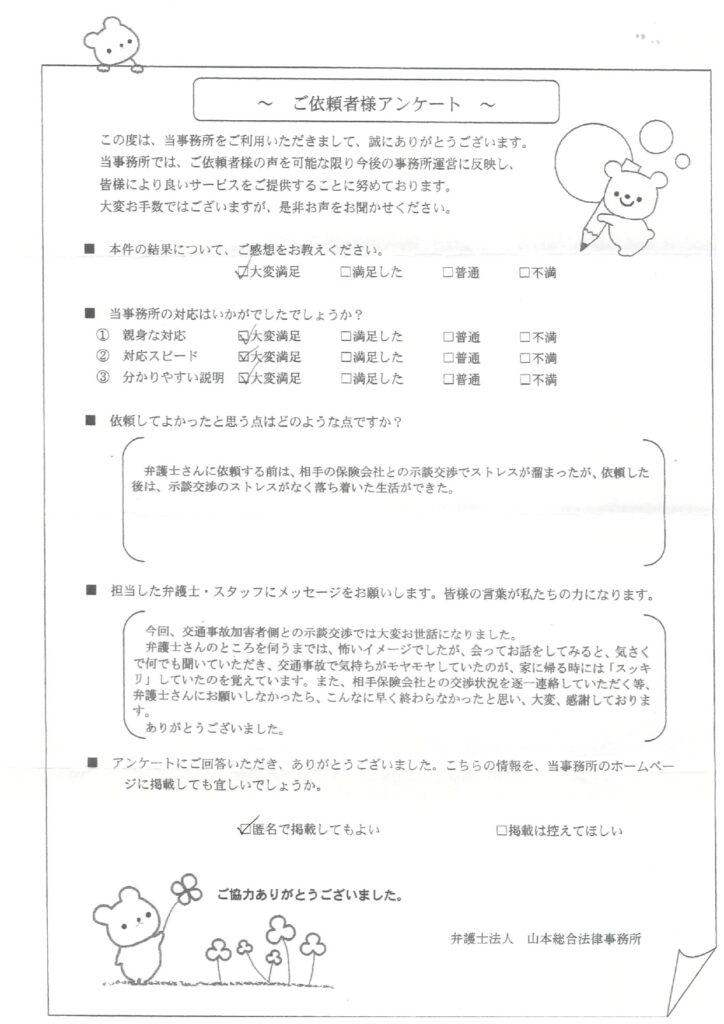 ～ ご依頼者様アンケート ～
この度は、当事務所をご利用いただきまして、誠にありがとうございます。
当事務所では、ご依頼者様の声を可能な限り今後の事務所運営に反映し、
皆様により良いサービスをご提供することに努めております。
大変お手数ではございますが、是非お声をお聞かせください。
■ 本件の結果について、ご感想をお教えください。
☑大変満足 □満足した □普通 □不満
■ 当事務所の対応はいかがでしたでしょうか？
① 親身な対応 ☑大変満足 □満足した □普通 □不満
② 対応スピード ☑大変満足 □満足した □普通 □不満
③ 分かりやすい説明 ☑大変満足 □満足した □普通 □不満
■ 依頼してよかったと思う点はどのような点ですか？
弁護士さんに依頼する前は、相手の保険会社との示談交渉でストレスが溜まったが、依頼した
後は、示談交渉のストレスがなく落ち着いた生活ができた。
■ 担当した弁護士・スタッフにメッセージをお願いします。皆様の言葉が私たちの力になります。
今回、交通事故加害者側との示談交渉では大変お世話になりました。
弁護士さんのところを伺うまでは、怖いイメージでしたが、会ってお話をしてみると、気さく
で何でも聞いていただき、交通事故で気持ちがモヤモヤしていたのが、家に帰る時には「スッキ
リ」していたのを覚えています。また、相手保険会社との交渉状況を逐一連絡していただく等、
弁護士さんにお願いしなかったら、こんなに早く終わらなかったと思い、大変、感謝しておりま
す。
ありがとうございました。
■ アンケートにご回答いただき、ありがとうございました。こちらの情報を、当事務所のホームペー
ジに掲載しても宜しいでしょうか。
☑匿名で掲載してもよい □掲載は控えてほしい
ご協力ありがとうございました。
弁護士法人 山本総合法律事務所